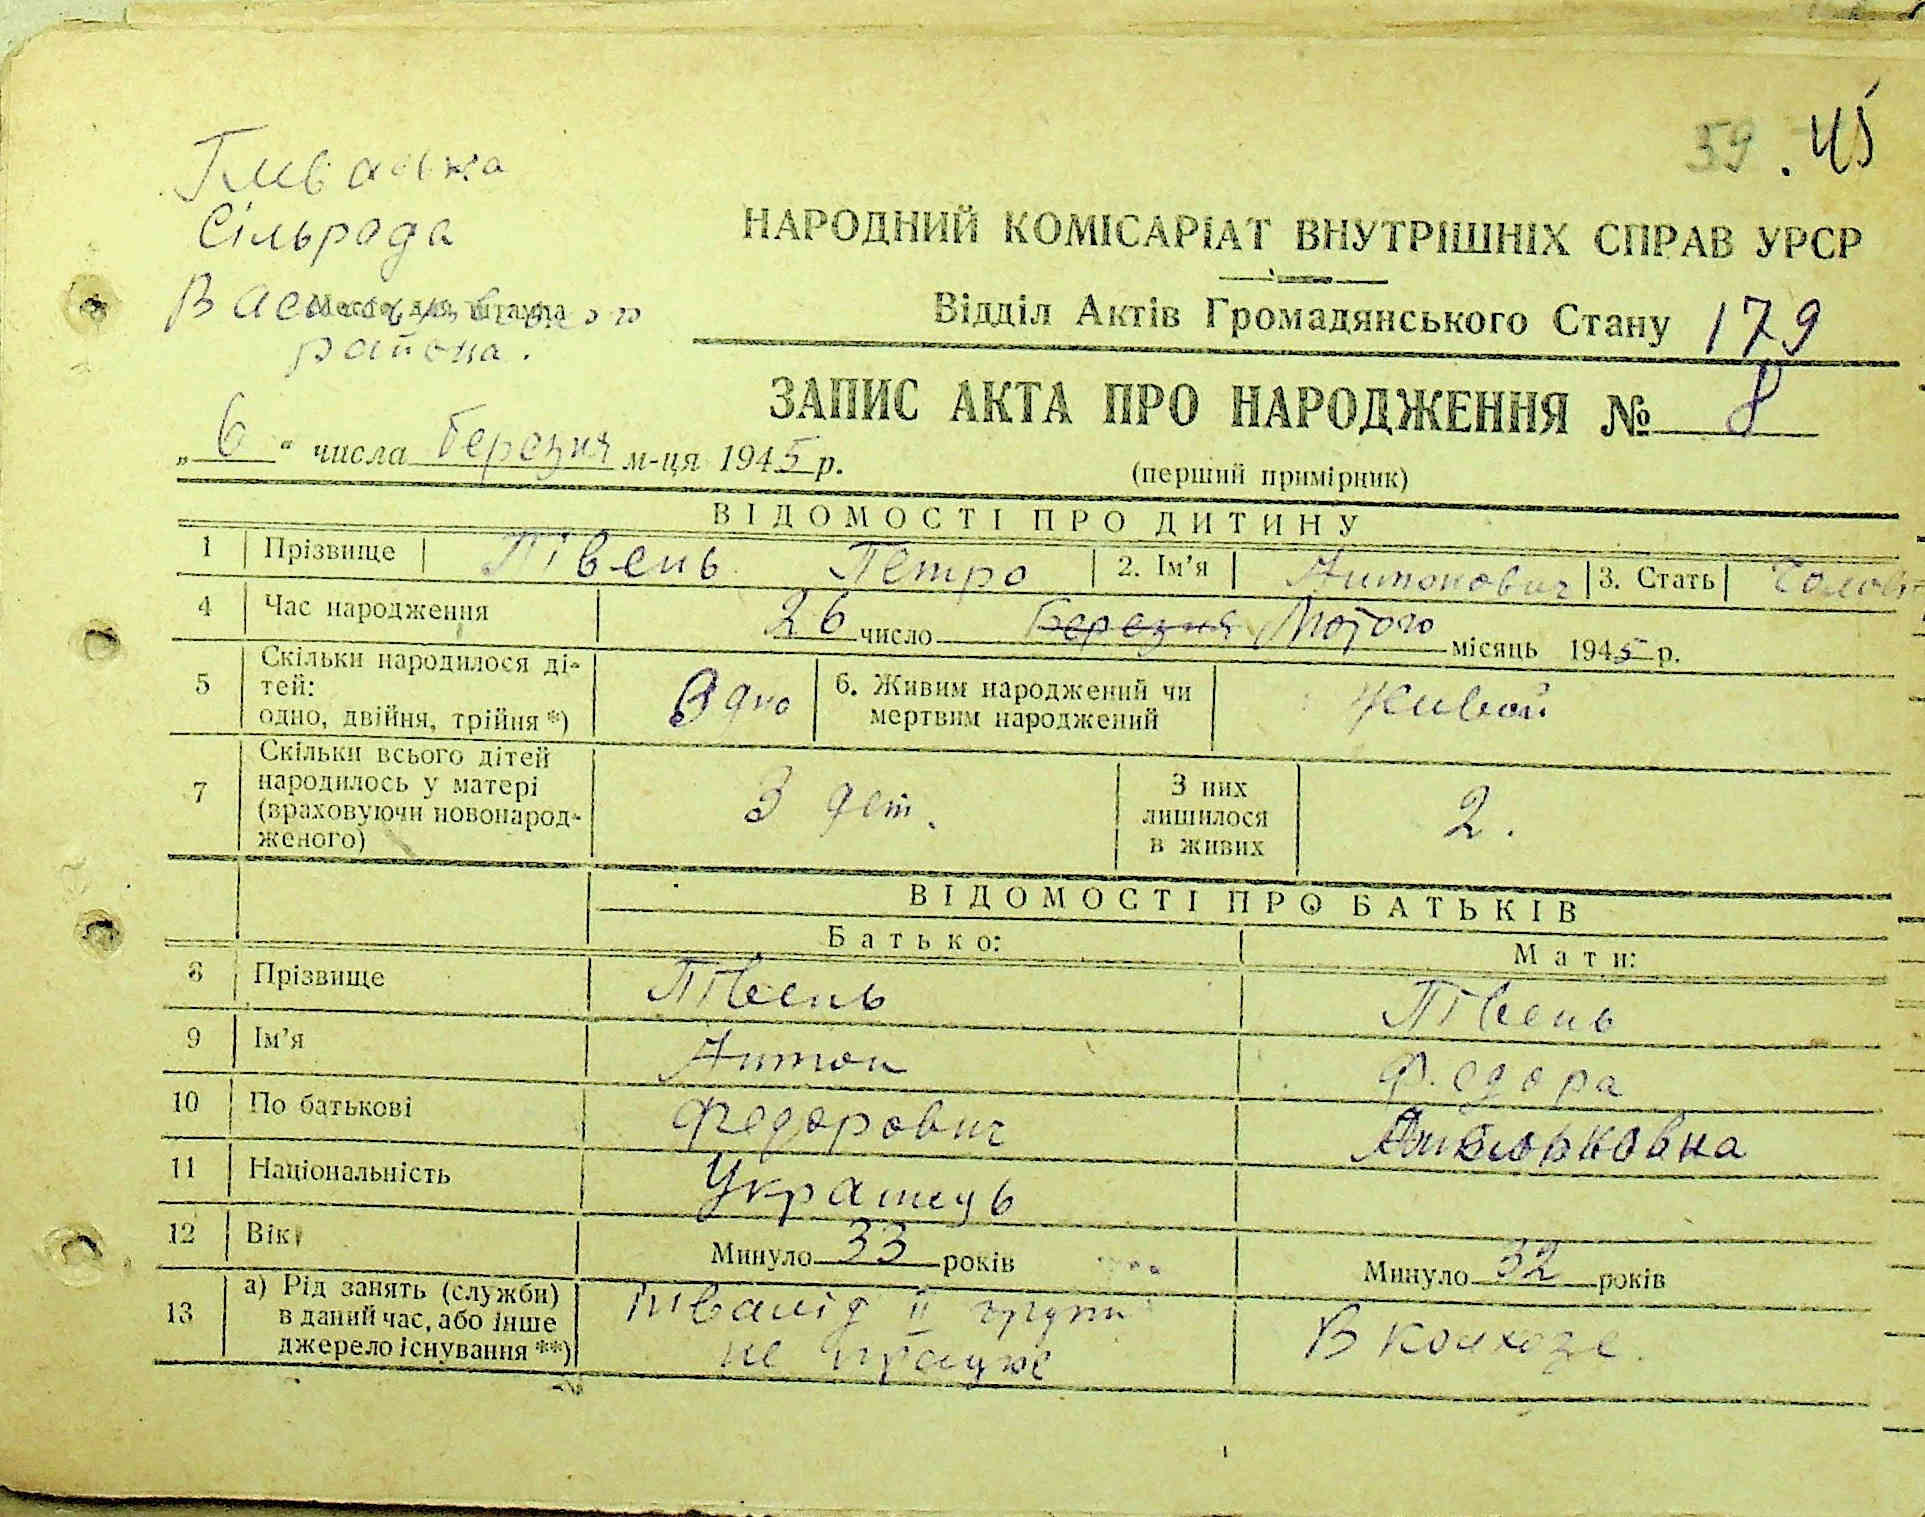 59. 45
сільрада
района.
НАРОДНИЙ КОМІСАРІАТ ВНУТРІШНІХ СПРАВ УРСР
Відділ Актів Громадянського Стану 179
ЗАПИС АКТА ПРО НАРОДЖЕННЯ № 8
„6“ числа березня м-ця 1945 р.
(перший примірник)
ВІДОМОСТІ ПРО ДИТИНУ
1 Прізвище Півень Петро 2. Ім’я Антонович 3. Стать
4 Час народження 26 число Березня Лютого місяць 1945 р.
5 Скільки народилося ді-
тей:
одно, двійня, трійня *) Одно 6. Живим народжений чи
мертвим народжений Живой
7 Скільки всього дітей
народилось у матері
(враховуючи новонарод-
женого) 3 дет. З них
лишилося
в живих 2.
ВІДОМОСТІ ПРО БАТЬКІВ
Батько: Мати:
8 Прізвище Півень Півень
9 Ім’я Антон Федора
10 По батькові Федорович
11 Національність Украінець
12 Вік Минуло 33 років Минуло 32 років
13 а) Рід занять (служби)
в даний час, або інше
джерело існування **) Інвалід II групи
не працює В колхозе.